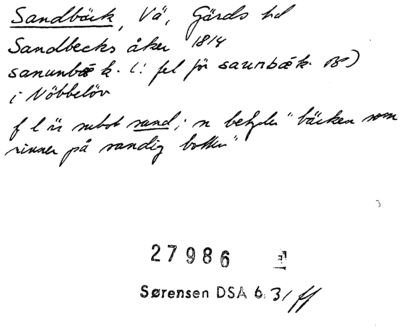 Sandbäck, Vä, Gärds hd
Sandbecks åker 1814
sanunbæk. (: fel för saunbæk. Br)
i Nöbbelöv
f l är subst sand; n betyder "bäcken som
rinner på sandig botten"
27986
Sørensen DSA 6. 31 ff